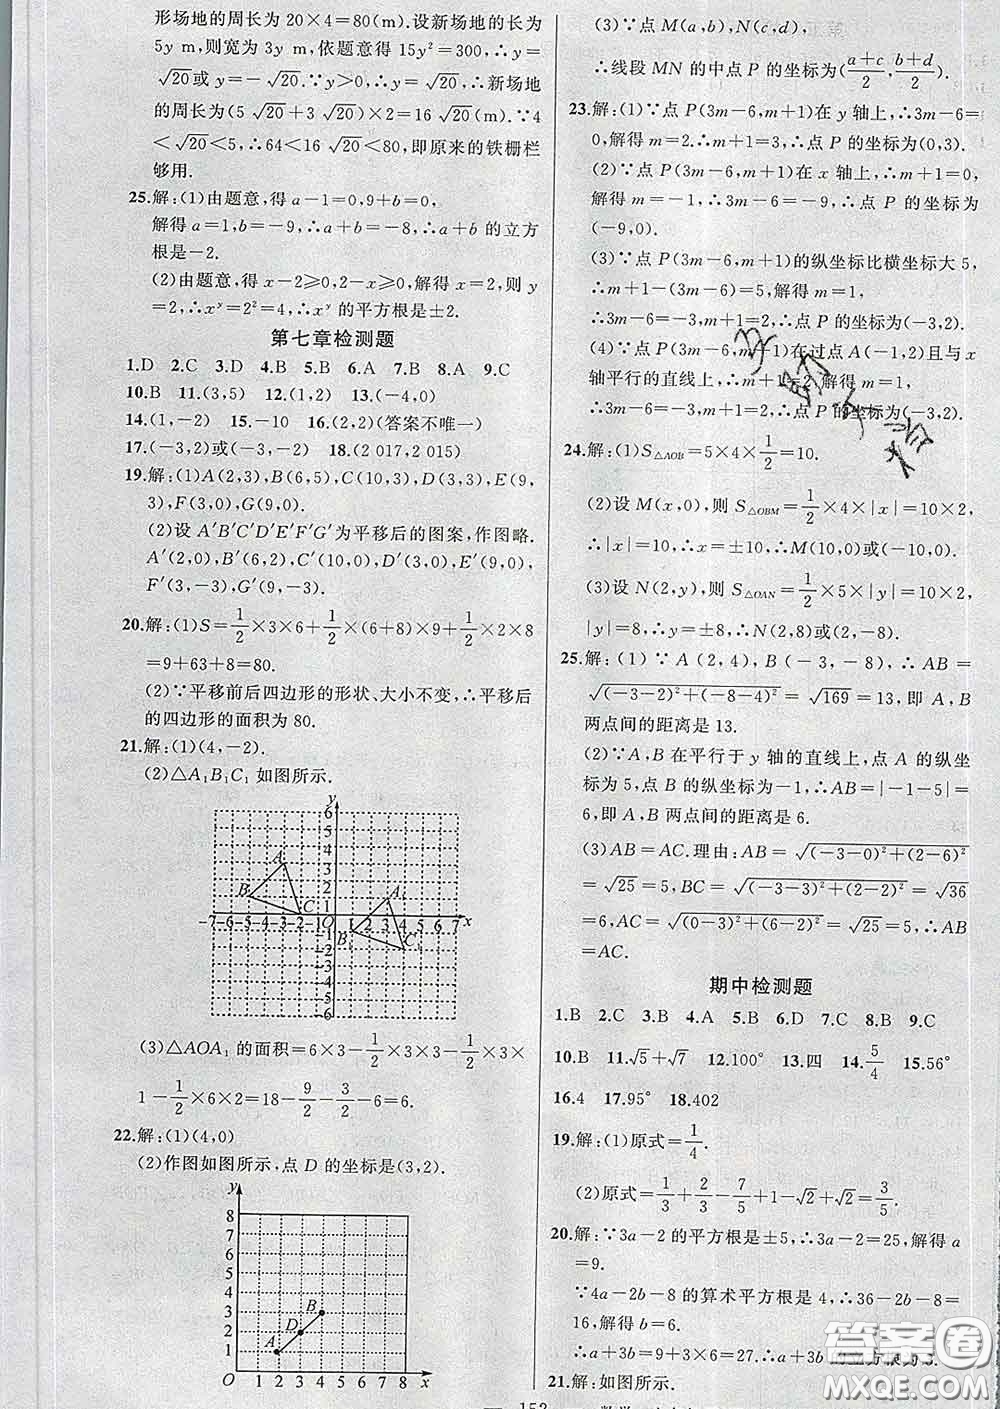 形场地的周长为 20×4=80(m). 设新场地的长为
5y m, 则宽为 3y m, 依题意得 15y²=300, ∴y=
√20或 y=-√20. ∵y>0, ∴y=√20, ∴新场地
的周长为(5√20+3√20)×2=16√20(m). ∵4
<√20<5, ∴64<16√20<80, 即原来的铁栅栏
够用.
25.解:(1)由题意,得 a-1=0,9+b=0,
解得 a=1,b=-9,∴a+b=-8,∴a+b 的立方
根是-2.
(2)由题意,得 x-2≥0,2-x≥0,解得 x=2,y
=2,∴xʸ=2²=4,∴xʸ 的平方根是±2.
第七章检测题
1.D 2.C 3.D 4.B 5.B 6.A 7.B 8.A 9.C
10.B 11.(3,5) 12.(1,2) 13.(-4,0)
14.(1,-2) 15.-10 16.(2,2)(答案不唯一)
17.(-3,2)或(-3,-2) 18.(2 017,2 015)
19.解:(1)A(2,3),B(6,5),C(10,3),D(3,3),E(9,
3),F(3,0),G(9,0).
(2)设 A′B′C′D′E′F′G′为平移后的图案,作图略.
A′(2,0),B′(6,2),C′(10,0),D′(3,0),E′(9,0),
F′(3,-3),G′(9,-3).
20.解:(1)S=1/2×3×6+1/2×(6+8)×9+1/2×2×8
=9+63+8=80.
(2)∵平移前后四边形的形状、大小不变,∴平移后
的四边形的面积为 80.
21.解:(1)(4,-2).
(2)△A₁B₁C₁ 如图所示.
y
6
5
4
3
2
1
A
B
C
A₁
B₁
C₁
-7-6-5-4-3-2-1 O 1 2 3 4 5 6 7 x
-1
-2
-3
-4
-5
-6
(3)△AOA₁ 的面积=6×3-1/2×3×3-1/2×3×
1-1/2×6×2=18-9/2-3/2-6=6.
22.解:(1)(4,0)
(2)作图如图所示,点 D 的坐标是(3,2).
y
8
7
6
5
4
3
2
1
B
D
A
O 1 2 3 4 5 6 7 8 x
(3)∵点 M(a,b),N(c,d),
∴线段 MN 的中点 P 的坐标为((a+c)/2,(b+d)/2).
23.解:(1)∵点 P(3m-6,m+1)在 y 轴上,∴3m-6=
0,解得 m=2,∴m+1=3,∴点 P 的坐标为(0,3).
(2)∵点 P(3m-6,m+1)在 x 轴上,∴m+1=0,
解得 m=-1,∴3m-6=-9,∴点 P 的坐标为
(-9,0).
(3)∵点 P(3m-6,m+1)的纵坐标比横坐标大 5,
∴m+1-(3m-6)=5,解得 m=1,
∴3m-6=-3,m+1=2,∴点 P 的坐标为(-3,2).
(4)∵点 P(3m-6,m+1)在过点 A(-1,2)且与 x
轴平行的直线上,∴m+1=2,解得 m=1,
∴3m-6=-3,m+1=2,∴点 P 的坐标为(-3,2).
24.解:(1)S△AOB=5×4×1/2=10.
(2)设 M(x,0),则 S△OBM=1/2×4×|x|=10×2,
∴|x|=10,∴x=±10,∴M(10,0)或(-10,0).
(3)设 N(2,y),则 S△OAN=1/2×5×|y|=10×2,
|y|=8,∴y=±8,∴N(2,8)或(2,-8).
25.解:(1)∵A(2,4),B(-3,-8),∴AB=
√((-3-2)²+(-8-4)²)=√169=13,即 A,B
两点间的距离是 13.
(2)∵A,B 在平行于 y 轴的直线上,点 A 的纵坐
标为 5,点 B 的纵坐标为-1,∴AB=|-1-5|=
6,即 A,B 两点间的距离是 6.
(3)AB=AC.理由:∵AB=√((-3-0)²+(2-6)²)
=√25=5,BC=√((-3-3)²+(2-2)²)=√36
=6,AC=√((0-3)²+(6-2)²)=√25=5,∴AB=
AC.
期中检测题
1.B 2.C 3.B 4.A 5.B 6.D 7.C 8.B 9.C
10.B 11.√5+√7 12.100° 13.四 14.5/4 15.56°
16.4 17.95° 18.402
19.解:(1)原式=1/4.
(2)原式=1/3+2/3-7/5+1-√2+√2=3/5.
20.解:∵3a-2 的平方根是±5,∴3a-2=25,解得 a
=9.
∵4a-2b-8 的算术平方根是 4,∴36-2b-8=
16,解得 b=6.
∴a+3b=9+3×6=27.∴a+3b 的立方根为 3.
21.解:如图所示.
答案圈
MXQE.COM